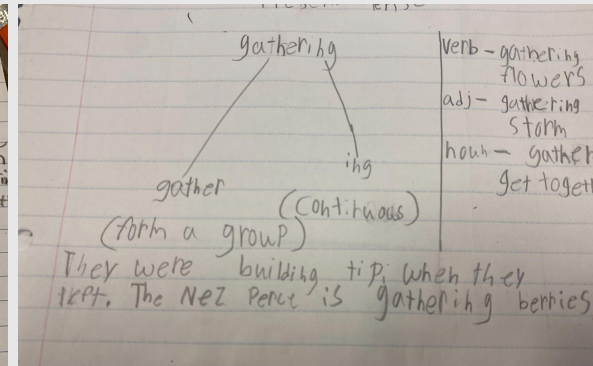 gathering
gather
ing
(continuous)
(form a group)
verb - gathering
flowers
adj - gathering
storm
noun - gather
get togeth
They were building tipi when they
left. The Nez Perce is gathering berries